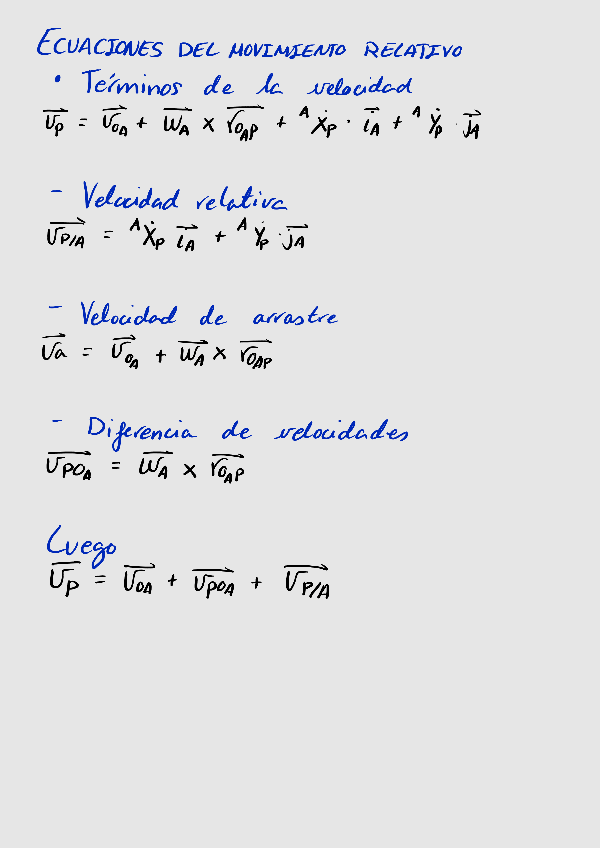 ECUACIONES DEL MOVIMIENTO RELATIVO
• Términos de la velocidad
$\vec{v_P} = \vec{v_{O_A}} + \vec{\omega_A} \times \vec{r_{O_AP}} + {}^A\dot{X}_P \cdot \vec{i_A} + {}^A\dot{Y}_P \cdot \vec{j_A}$
- Velocidad relativa
$\vec{v_{P/A}} = {}^A\dot{X}_P \vec{i_A} + {}^A\dot{Y}_P \cdot \vec{j_A}$
- Velocidad de arrastre
$\vec{v_a} = \vec{v_{O_A}} + \vec{\omega_A} \times \vec{r_{O_AP}}$
- Diferencia de velocidades
$\vec{v_{PO_A}} = \vec{\omega_A} \times \vec{r_{O_AP}}$
Luego
$\vec{v_P} = \vec{v_{OA}} + \vec{v_{POA}} + \vec{v_{P/A}}$